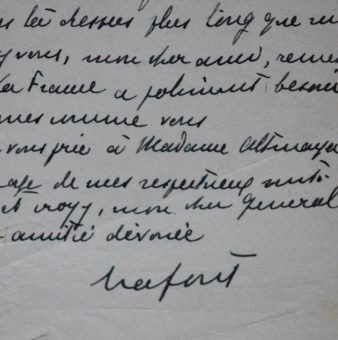 plus long que
vous, mon cher ami,
la France a joliment besoin
comme vous
vous prie à Madame Altmayer
de mes respectueux
et croyez, mon cher Général
amitié dévouée